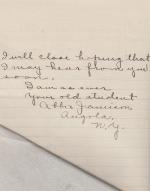 I will close hoping that
I may hear from you
soon.
I am as ever
your old student
Abbie Jamison
Angola,
N.Y.